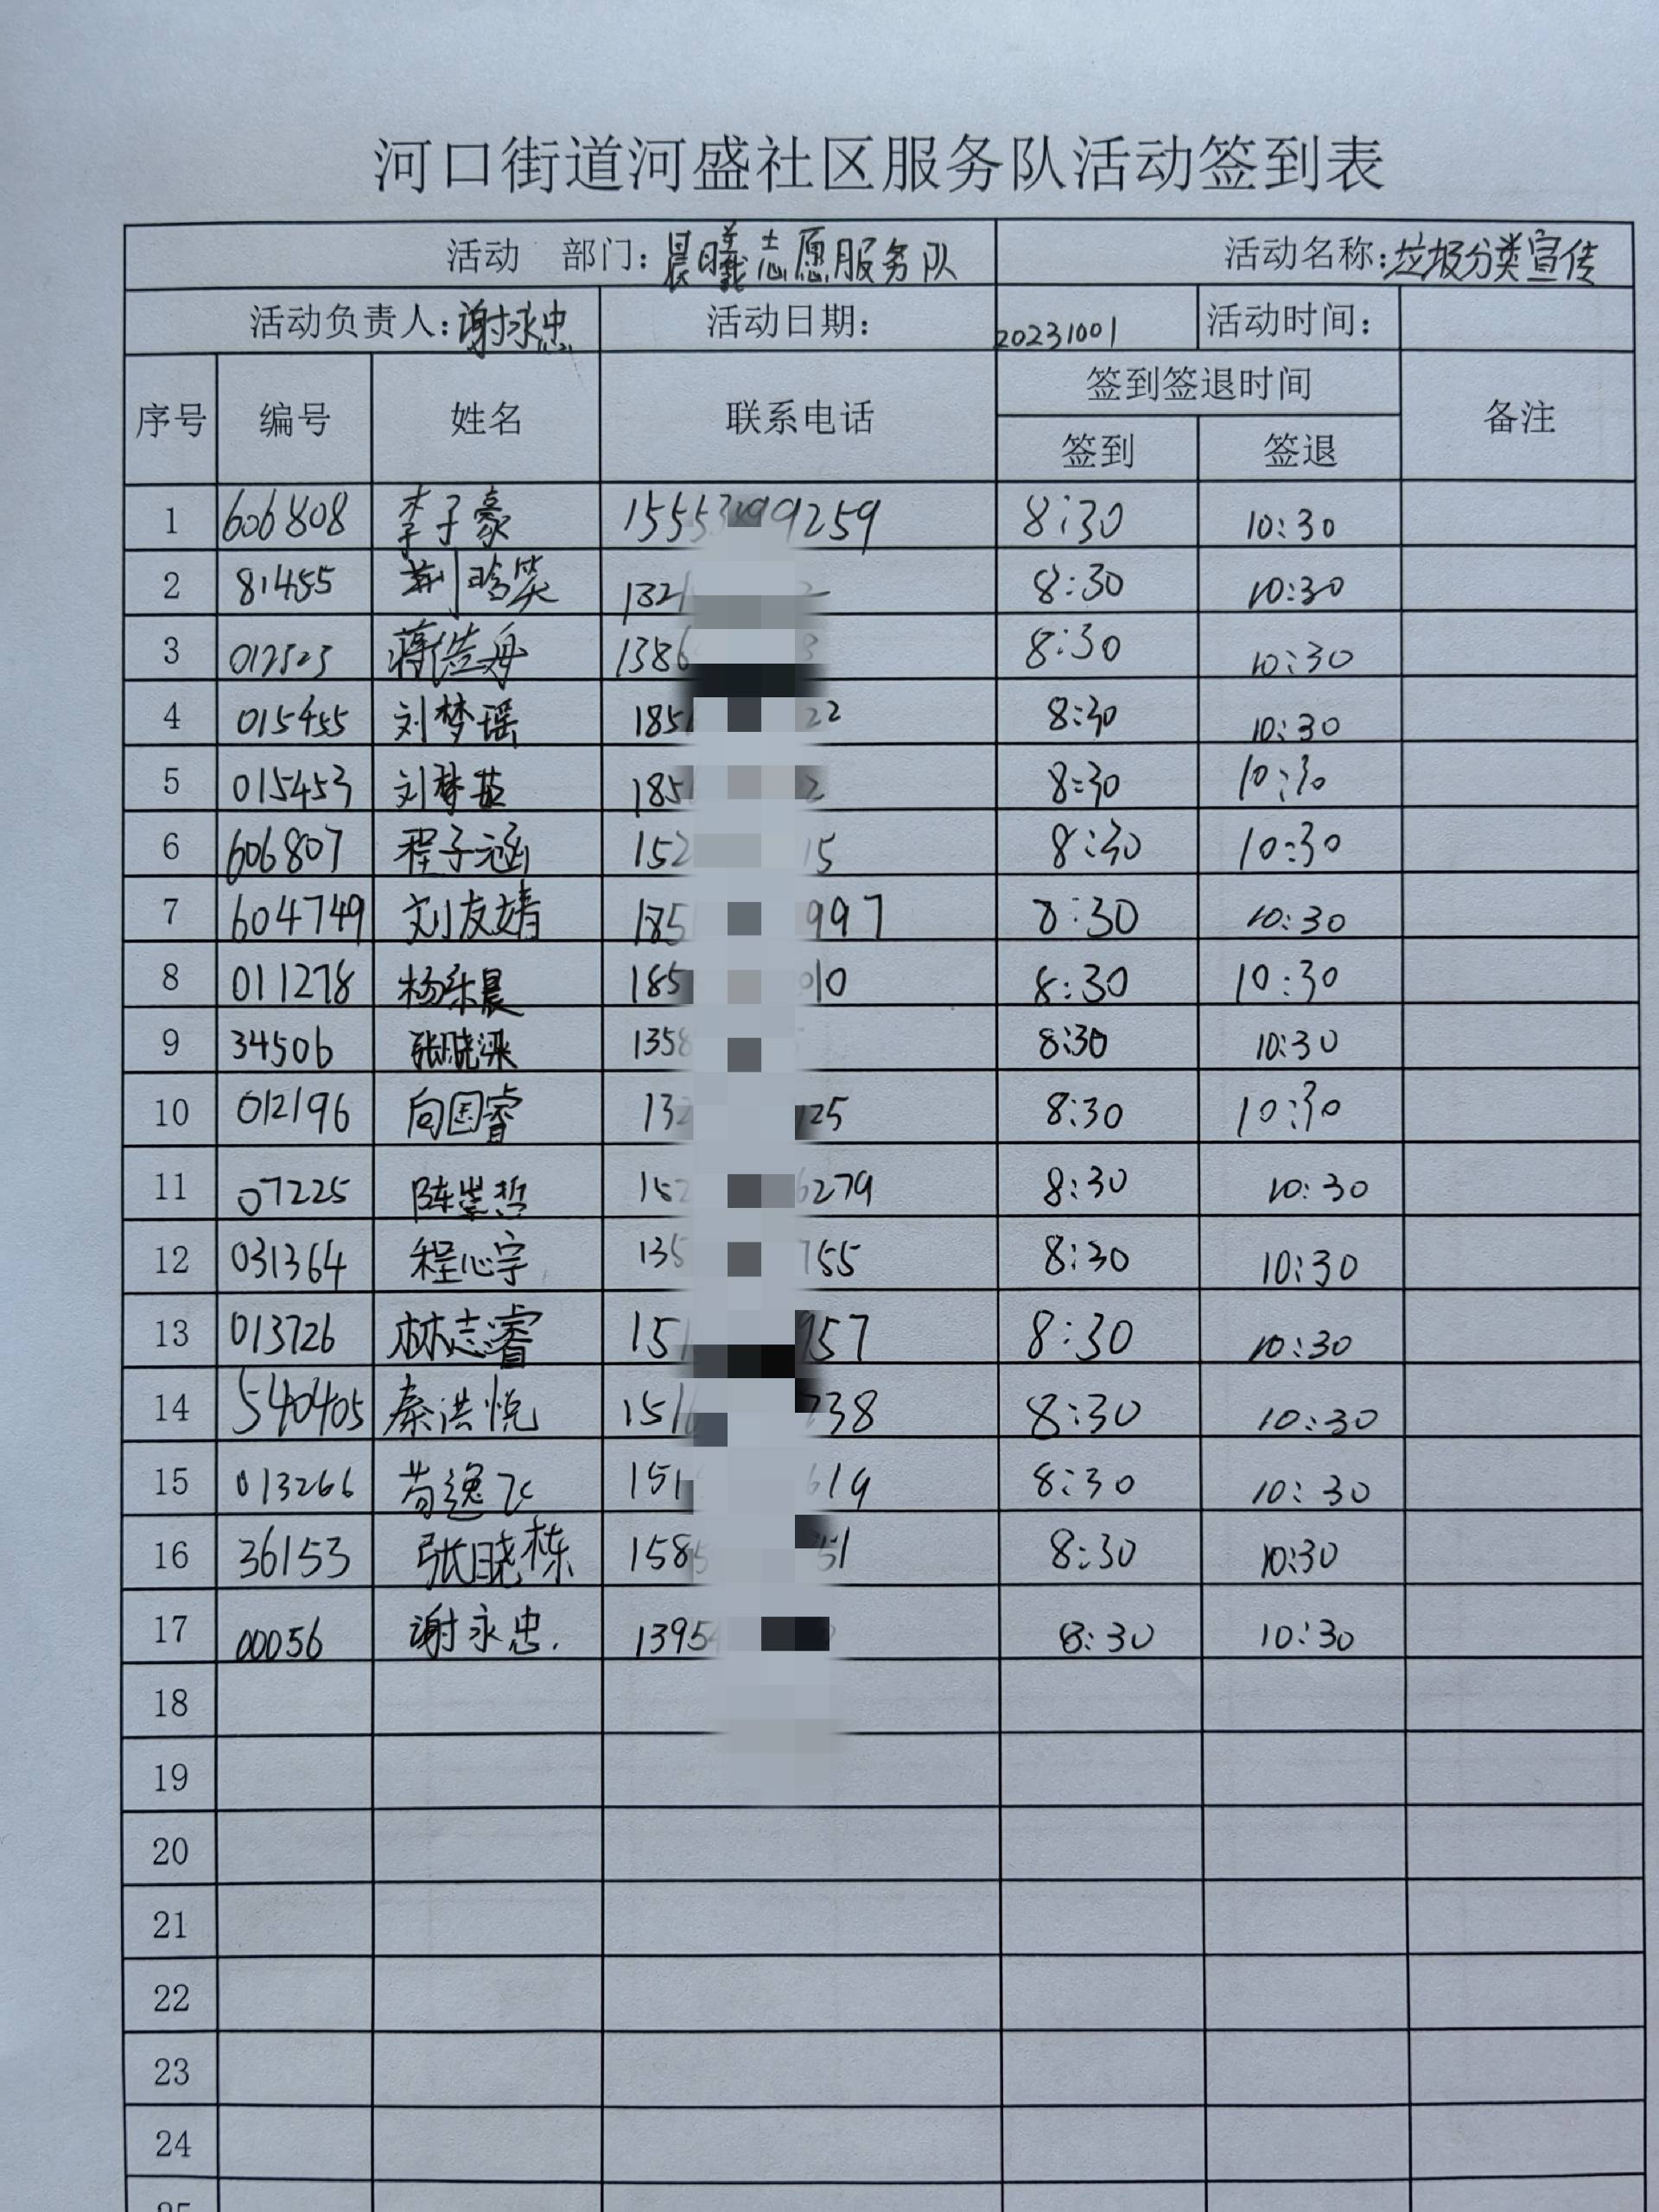 河口街道河盛社区服务队活动签到表
活动 部门: 晨曦志愿服务队 活动名称: 垃圾分类宣传
活动负责人: 谢永忠 活动日期: 20231001 活动时间:
序号 编号 姓名 联系电话 签到签退时间 备注
签到 签退
1 606808 李子豪 9259 8:30 10:30
2 81455 荆晗笑 132 8:30 10:30
3 蒋浩舟 1386 8:30 10:30
4 015455 刘梦瑶 185 22 8:30 10:30
5 015453 刘梦 185 2 8:30 10:30
6 606807 程子涵 152 15 8:30 10:30
7 604749 刘友婧 185 997 8:30 10:30
8 011278 杨乐晨 185 010 8:30 10:30
9 34506 张晓梁 1358 8:30 10:30
10 012196 向国睿 132 25 8:30 10:30
11 07225 陈崇哲 152 6279 8:30 10:30
12 031364 程心宇 135 755 8:30 10:30
13 013726 林志睿 151 957 8:30 10:30
14 540405 秦洪悦 151 738 8:30 10:30
15 013266 苟逸飞 151 619 8:30 10:30
16 36153 张晓栋 1585 51 8:30 10:30
17 00056 谢永忠. 1395 8:30 10:30
18
19
20
21
22
23
24
25